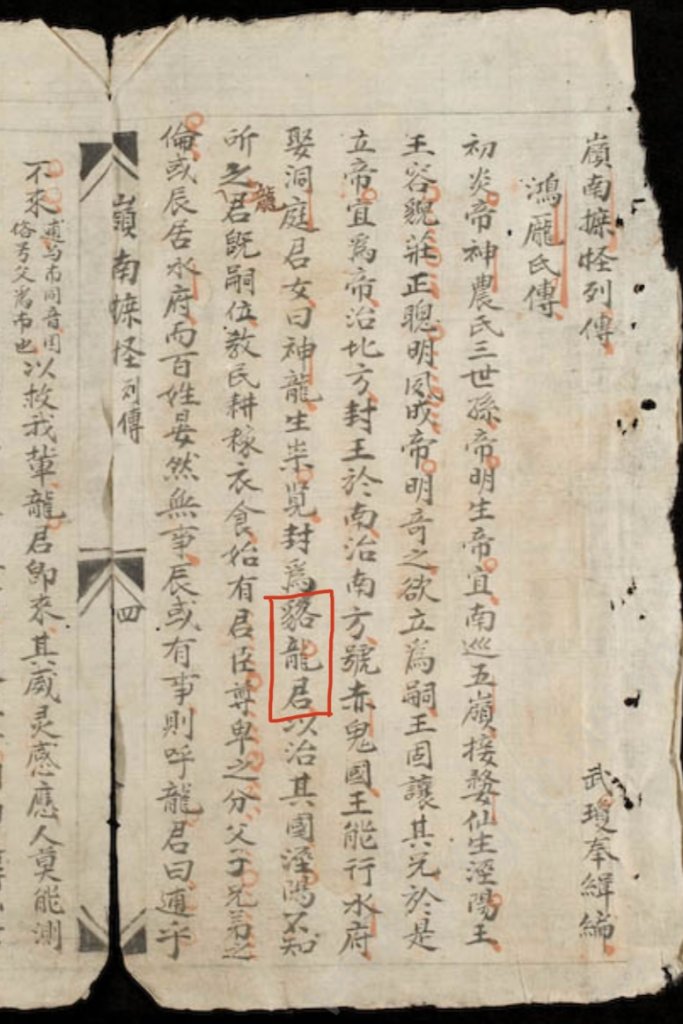 嶺南摭怪列傳
武瓊奉緝編
鴻厖氏傳
初炎帝神農氏三世孫帝明生帝宜南巡五嶺接婺仙生涇陽王
王容貌莊正聰明夙成帝明奇之欲立為嗣王固讓其兄於是
立帝宜為帝治北方封王於南治南方號赤鬼國王能行水府
娶洞庭君女曰神龍生崇覧封為貉龍君以治其國涇陽不知
所之龍君既嗣位教民耕稼衣食始有君臣尊卑之分父子兄弟之
倫或辰居水府而百姓晏然無事辰或有事則呼龍君曰逋乎
嶺南摭怪列傳
四
不來
俗号父為布也
以救我輩龍君即來其威灵感應人莫能測